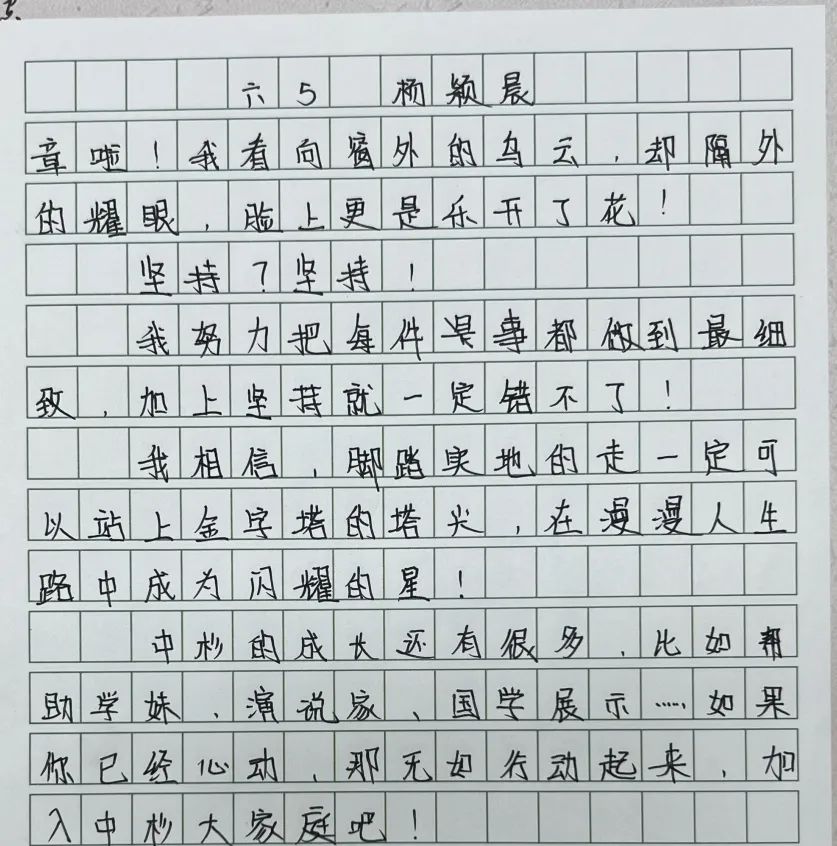 六5 杨颖晨
章啦！我看向窗外的乌云，却隔外
的耀眼，脸上更是乐开了花！
坚持？坚持！
我努力把每件事都做到最细
致，加上坚持就一定错不了！
我相信，脚踏实地的走一定可
以站上金字塔的塔尖，在漫漫人生
路中成为闪耀的星！
中杉的成长还有很多，比如帮
助学妹、演说家、国学展示……如果
你已经心动，那无如行动起来，加
入中杉大家庭吧！